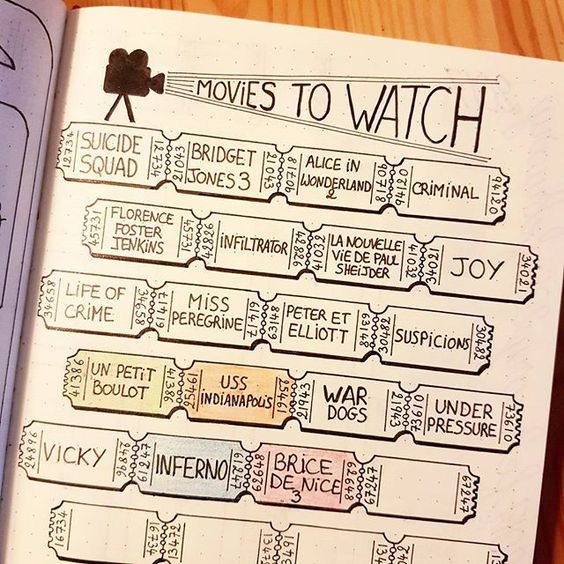 MOVIES TO WATCH
12734 SUICIDE SQUAD 12734
21043 BRIDGET JONES 3 21043
90718 ALICE IN WONDERLAND 2 90718
94120 CRIMINAL 94120
45731 FLORENCE FOSTER JENKINS 45731
42826 INFILTRATOR 42826
41032 LA NOUVELLE VIE DE PAUL SHEIJDER 41032
34021 JOY 34021
34658 LIFE OF CRIME 34658
61417 MISS PEREGRINE 61417
63148 PETER ET ELLIOTT 63148
30482 SUSPICIONS 30482
41386 UN PETIT BOULOT 41386
25461 USS INDIANAPOLIS 25461
21943 WAR DOGS 21943
73610 UNDER PRESSURE 73610
24896 VICKY 24896
61247 INFERNO 61247
62648 BRICE DE NICE 3 62648
67247 67247
16734 16734
13472